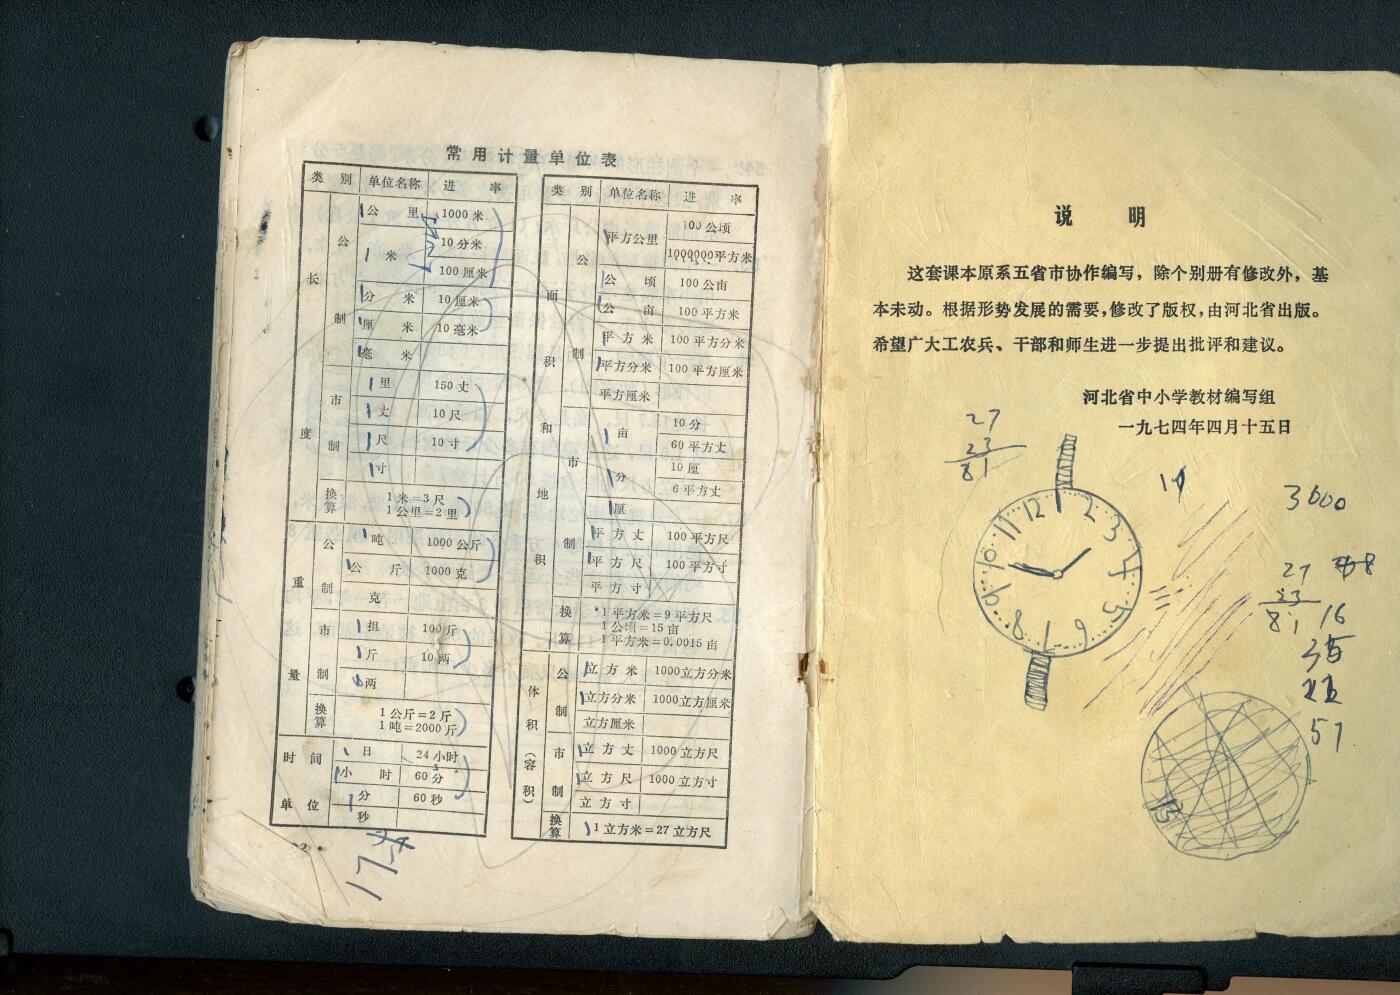 常用计量单位表
类别 单位名称 进率
长度
公制
公里 1000米
米 10分米
100厘米
分米 10厘米
厘米 10毫米
毫米
市制
里 150丈
丈 10尺
尺 10寸
寸
换算
1米=3尺
1公里=2里
重量
公制
吨 1000公斤
公斤 1000克
克
市制
担 100斤
斤 10两
两
换算
1公斤=2斤
1吨=2000斤
时间单位
日 24小时
小时 60分
分 60秒
秒
类别 单位名称 进率
面积和地积
公制
平方公里 100公顷
1000000平方米
公顷 100公亩
公亩 100平方米
平方米 100平方分米
平方分米 100平方厘米
平方厘米
市制
亩 10分
60平方丈
分 10厘
6平方丈
厘
平方丈 100平方尺
平方尺 100平方寸
平方寸
换算
1平方米=9平方尺
1公顷=15亩
1平方米=0.0015亩
体积(容积)
公制
立方米 1000立方分米
立方分米 1000立方厘米
立方厘米
市制
立方丈 1000立方尺
立方尺 1000立方寸
立方寸
换算
1立方米=27立方尺
说明
这套课本原系五省市协作编写,除个别册有修改外,基
本未动。根据形势发展的需要,修改了版权,由河北省出版。
希望广大工农兵、干部和师生进一步提出批评和建议。
河北省中小学教材编写组
一九七四年四月十五日
27
23
81
12 1 2 3 4 5 6 7 8 9 10 11
3000
27
23
81
16
57